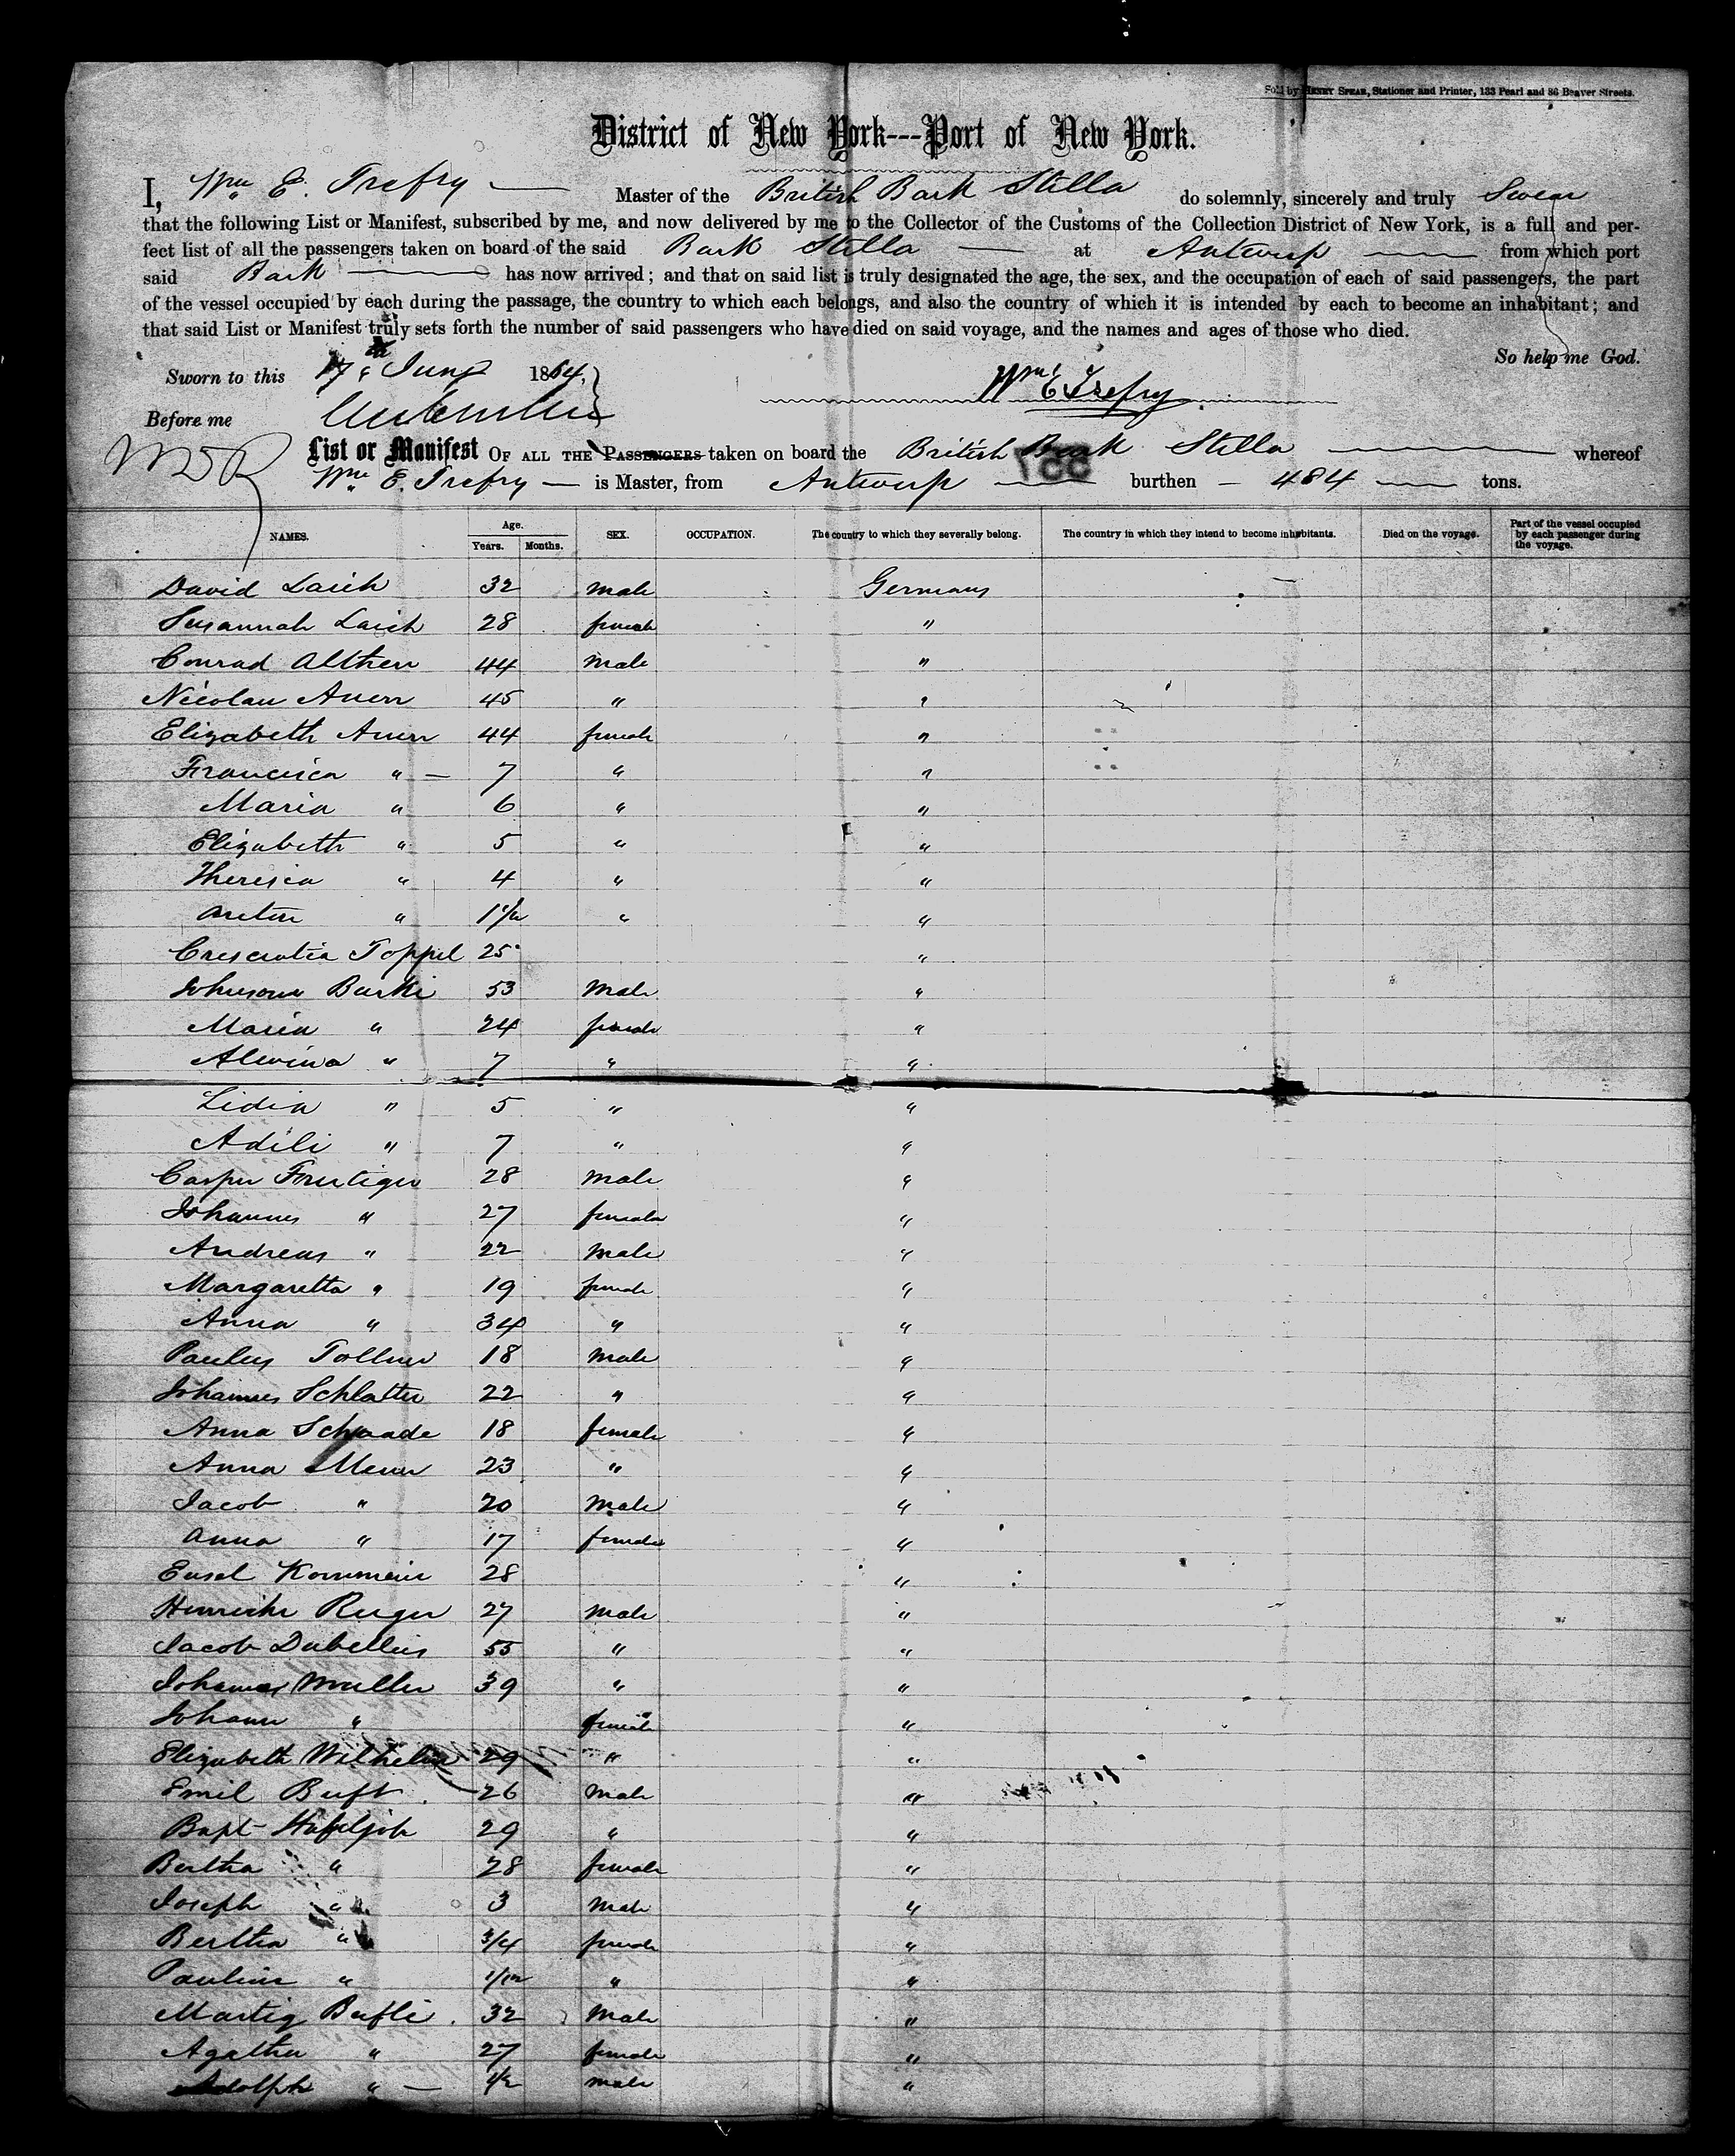 Sold by Henry Spear, Stationer and Printer, 133 Pearl and 86 Beaver Streets.
District of New York---Port of New York.
I, Wm E. Trefry Master of the British Bark Stella do solemnly, sincerely and truly Swear
that the following List or Manifest, subscribed by me, and now delivered by me to the Collector of the Customs of the Collection District of New York, is a full and per-
fect list of all the passengers taken on board of the said Bark Stella at Antwerp from which port
said Bark has now arrived; and that on said list is truly designated the age, the sex, and the occupation of each of said passengers, the part
of the vessel occupied by each during the passage, the country to which each belongs, and also the country of which it is intended by each to become an inhabitant; and
that said List or Manifest truly sets forth the number of said passengers who have died on said voyage, and the names and ages of those who died.
So help me God.
Sworn to this 17th June 1864,
Wm E Trefry
Before me
List or Manifest OF ALL THE PASSENGERS taken on board the British Bark Stella whereof
Wm E. Trefry is Master, from Antwerp burthen 484 tons.
NAMES. Age. Years. Months. SEX. OCCUPATION. The country to which they severally belong. The country in which they intend to become inhabitants. Died on the voyage. Part of the vessel occupied by each passenger during the voyage.
David Laich 32 male Germany
Susannah Laich 28 female "
Conrad Altherr 44 male "
Nicolau Auerr 45 " "
Elizabeth Auerr 44 female "
Francisca " 7 " "
Maria " 6 " "
Elizabeth " 5 " "
Theresia " 4 " "
Anton " " "
Crescentia Toppel 25 "
Burki 53 Male "
Maria " 24 female "
Alwina " 7 " "
Lidia " 5 " "
Adili " 7 " "
Casper Frutiger 28 Male "
Johannes " 27 female "
Andreas " 22 Male "
Margaretta " 19 female "
Anna " 34 " "
Paulus Tollner 18 Male "
Johannes Schlatter 22 " "
Anna Schaade 18 female "
Anna Meier 23 " "
Jacob " 20 Male "
Anna " 17 female "
28 "
Heinrich Ruger 27 Male "
Jacob Dubellius 55 " "
Johannes Muller 39 " "
Johann " female "
Elizabeth Wilhelm 29 " "
Emil Buft 26 Male "
Bapt 29 " "
Bertha " 28 female "
Joseph " 3 Male "
Bertha " 3/4 female "
Pauline " 1/12 " "
Martig Bufli 32 Male "
Agatha " 27 female "
Adolph " 1/2 male "